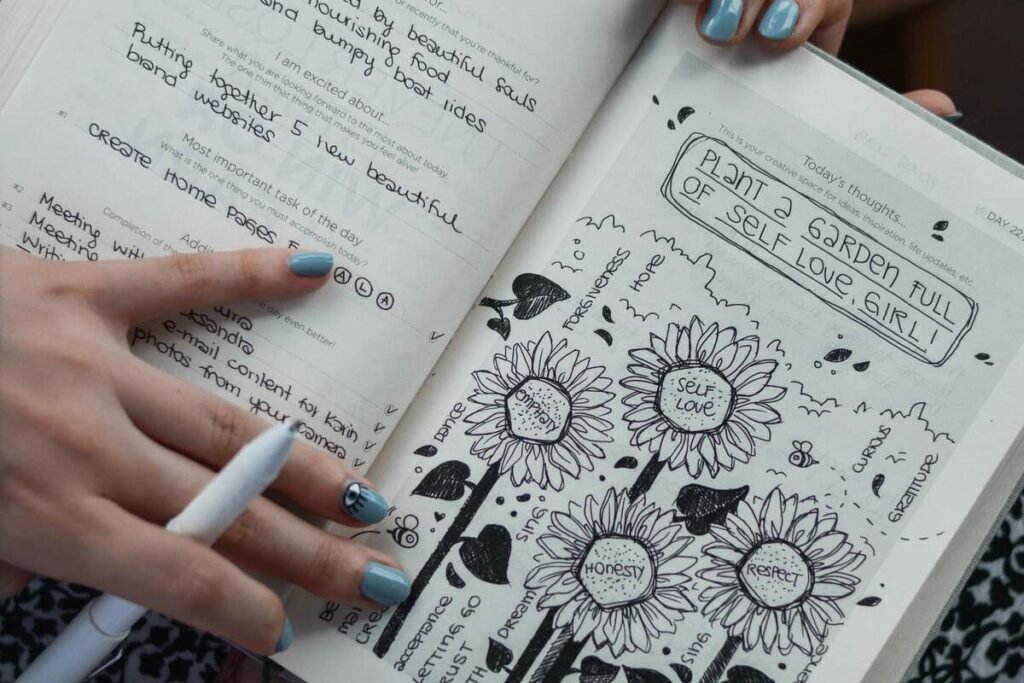 or recently that you're thankful for?
by beautiful souls
nourishing food
and bumpy boat rides
I am excited about...
Share what you are looking forward to the most about today.
The one thing that makes you feel alive!
Putting together 5 new beautiful
brand websites
Most important task of the day
What is the one thing you must accomplish today?
#1
CREATE HOME PAGES
A L A
Completion of
day even better!
#2 Meeting with
#3 Meeting
Writing
e-mail content for Karin
photos from your camera
DAY 22
Today's thoughts...
This is your creative space for ideas, inspiration, life updates, etc.
PLANT A GARDEN FULL
OF SELF LOVE, GIRL!
FORGIVENESS
HOPE
EMPATHY
SELF
LOVE
DANCE
CURIOUS
GRATITUDE
SING
HONESTY
RESPECT
ACCEPTANCE
LETTING GO
DREAM
SING